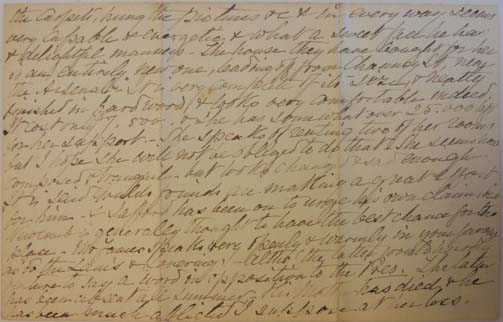 the carpets, hung the pictures &c & in every way seems
very capable & energetic & what a sweet face he has
& delightful manners - The house they have bought for her
is an entirely new one, leading from Chauncy St, near
the Arsenal. It is very complete of its size, & neatly
finished in hard wood, & looks very comfortable indeed.
It cost only 7,500. & she has somewhat over 25,000 left
for her support. - She speaks of renting two of her rooms
but I hope she will not be obliged to do that. She seems now
composed & tranquil - but looks changed & sad enough
It is said would are making a great effort
for him - & Safford has been on to urge his own claims
Newcomb is generally thought to have the best chance for the
place. Mr speaks very openly & warmly in your favor
as do the & Loverings. Altho' the latter
to say a word in opposition to the Pres. The latter
has been absent all summer. His mother has died, & he
has been much afflicted I suppose at her loss.